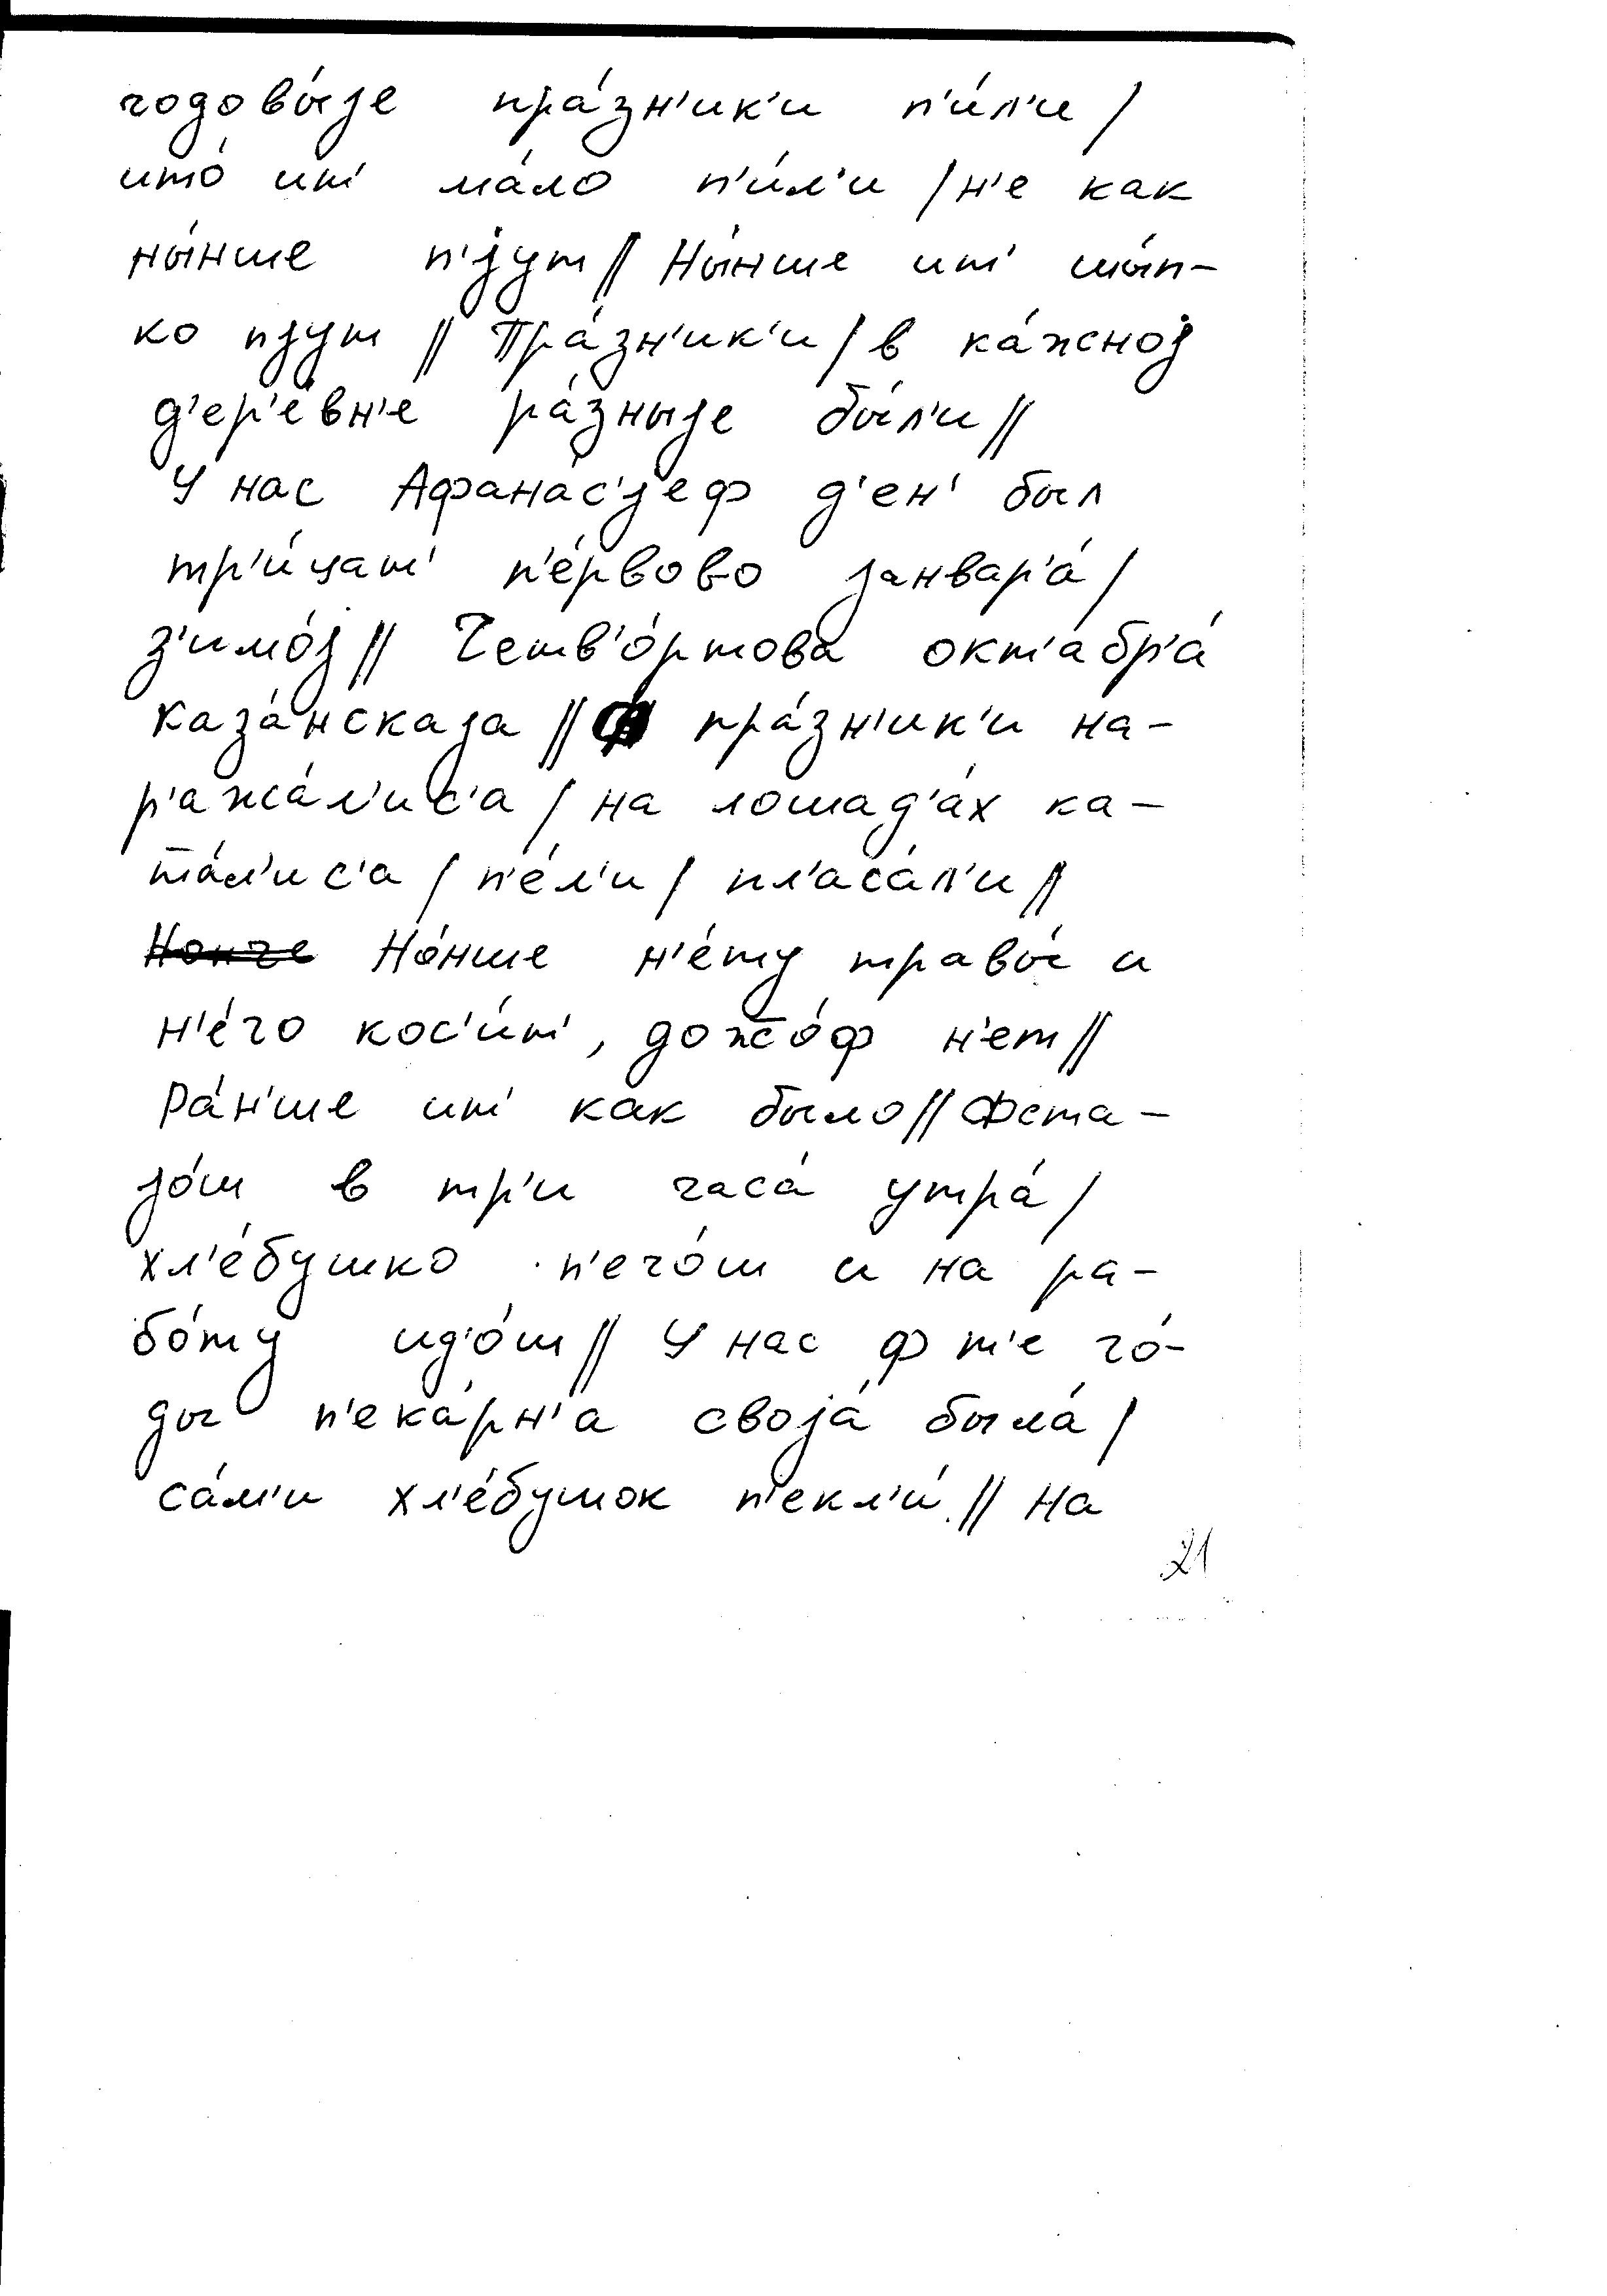 годовы́jе пра́зн'ик'и п'и́л'и /
што́ шт' ма́ло п'и́л'и / н'е как
ны́нше п'jут // Ны́нше ит' шы́п-
ко пjут // Пра́зн'ик'и / в ка́жноj
д'ер'е́вн'е ра́зныjе бы́л'и //
У нас Афана́с'jеф д'ен' был
тр'и́цат' п'е́рвово jанвар'а́ /
з'имо́j // Четв'о́ртова окт'абр'а́
каза́нскаjа // пра́зн'ик'и на-
р'ажа́л'ис'а / на лошад'а́х ка-
та́л'ис'а / п'е́л'и / пл'аса́л'и //
Нонче Но́нше н'е́ту травы́ и
н'е́го кос'и́т', дожжо́ф н'ет //
Ра́н'ше ит' как было // Фста-
jо́ш в тр'и часа́ утра́ /
хл'е́бушко п'ечо́ш и на ра-
бо́ту ид'о́ш // У нас ф т'е го́-
ды п'ека́рн'а своjа́ была́ /
са́м'и хл'е́бушок п'екл'и́ // На
21